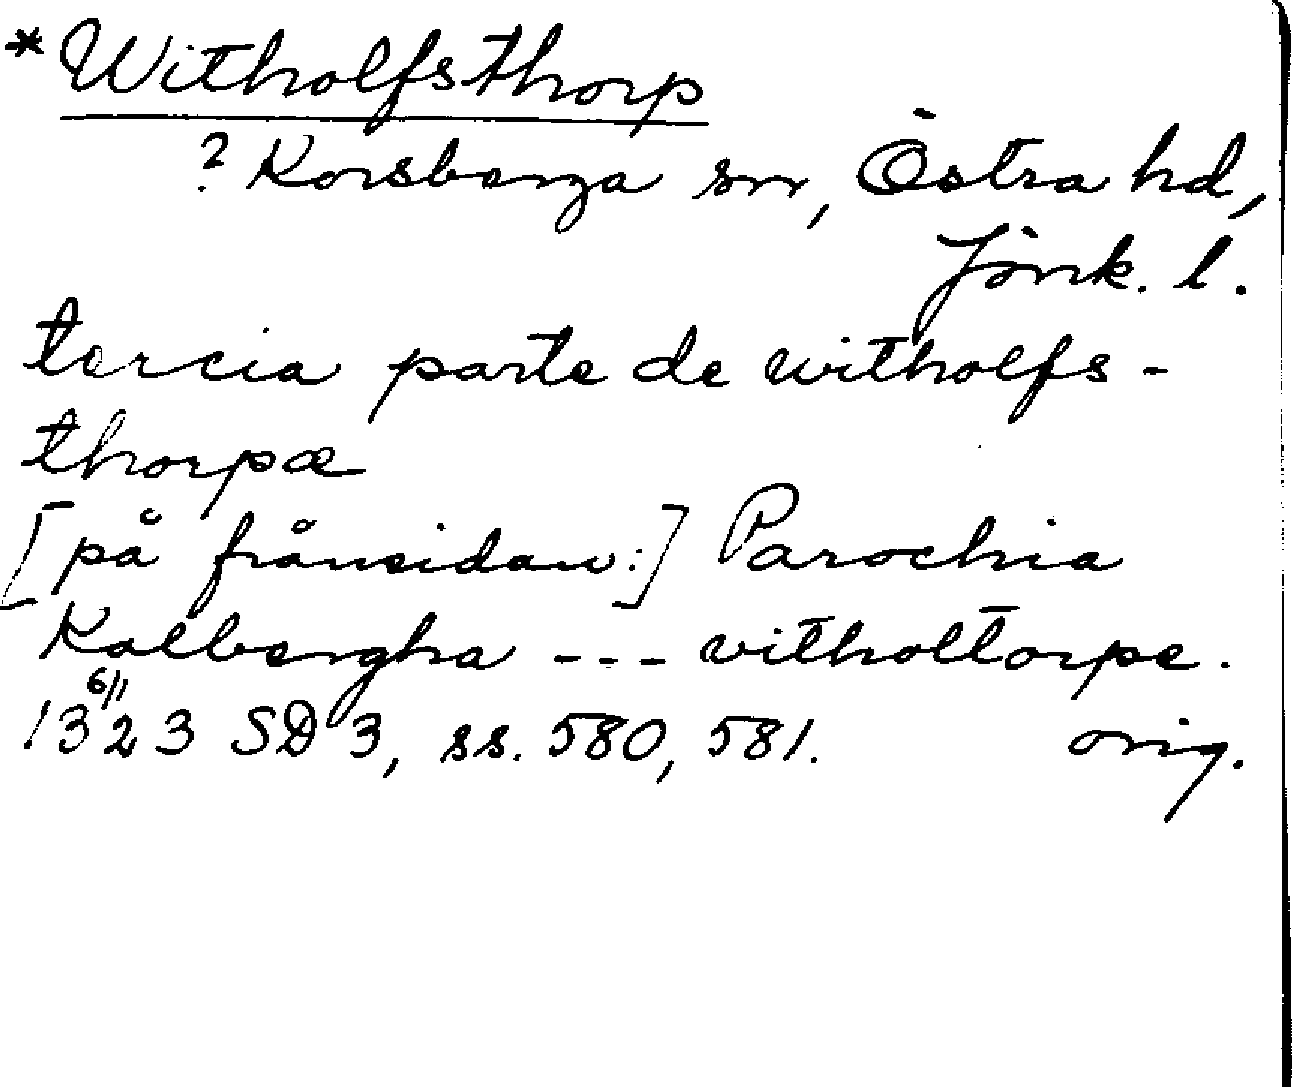 *Witholfsthorp
? Korsberga sn, Östra hd,
Jönk. l.
tercia parte de witholfs-
thorpæ
[på frånsidan:] Parochia
Kalbergha --- vitholtorpe.
13 6/11 23 SD 3, ss. 580, 581. orig.